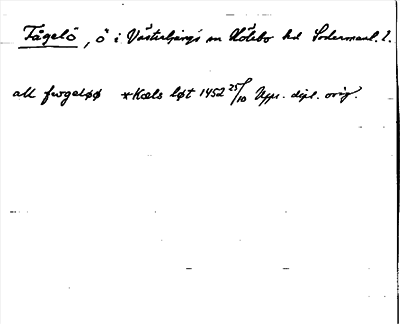 Fågelö, ö i Västerljungs sn Hölebo hd Södermanl. l.
all fwgeløø *Kæls løt 1452 25/10 Upps. dipl. orig.